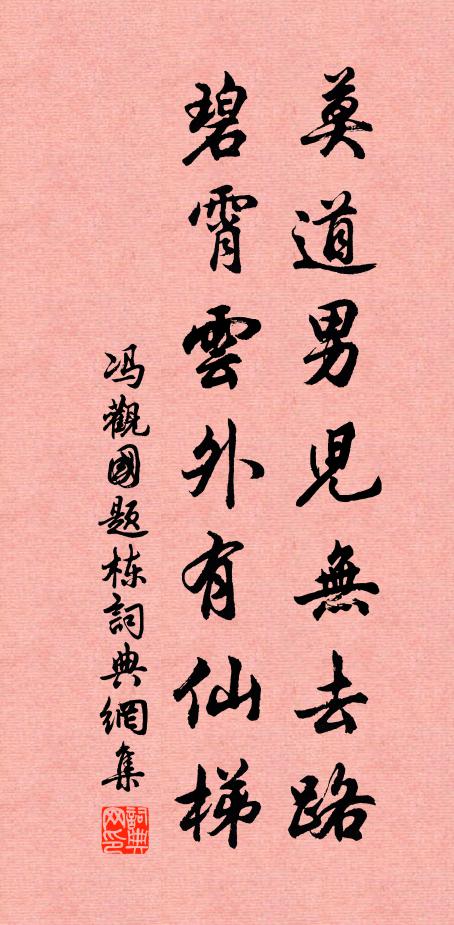 莫道男兒無去路
碧霄雲外有仙梯
冯觀國題栋詞典網集
詞典网印